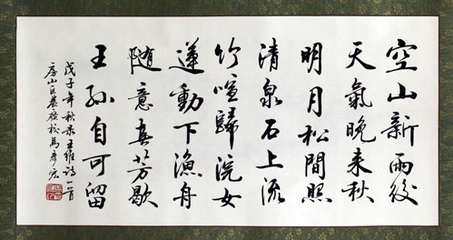 空山新雨後
天氣晚來秋
明月松間照
清泉石上流
竹喧歸浣女
蓮動下漁舟
隨意春芳歇
王孫自可留
戊子年秋录王維詩一首